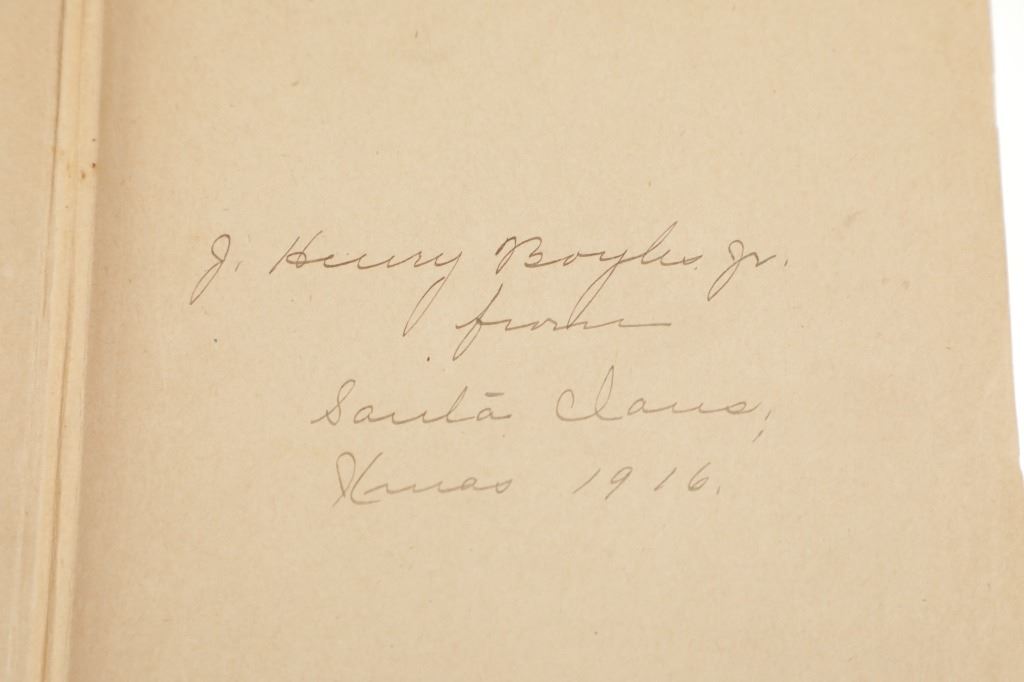 J. Henry Boyles Jr.
from
Santa Claus,
Xmas 1916.